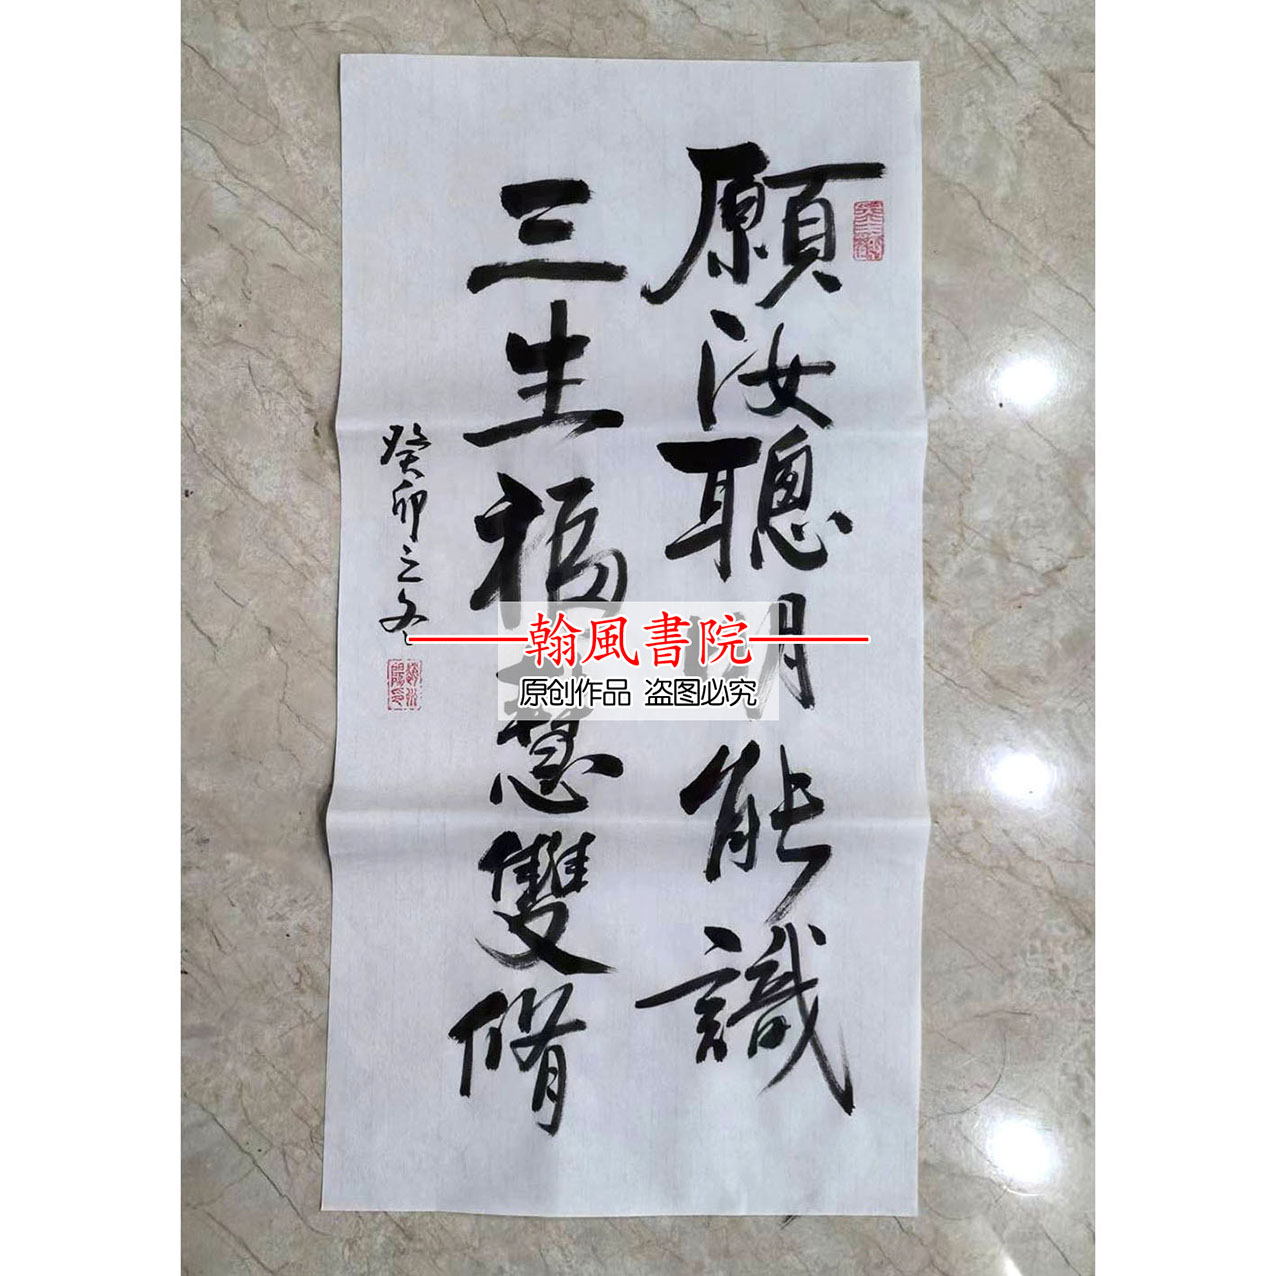 願汝聰明能識
三生福慧雙脩
癸卯之冬
翰風書院
原创作品 盗图必究